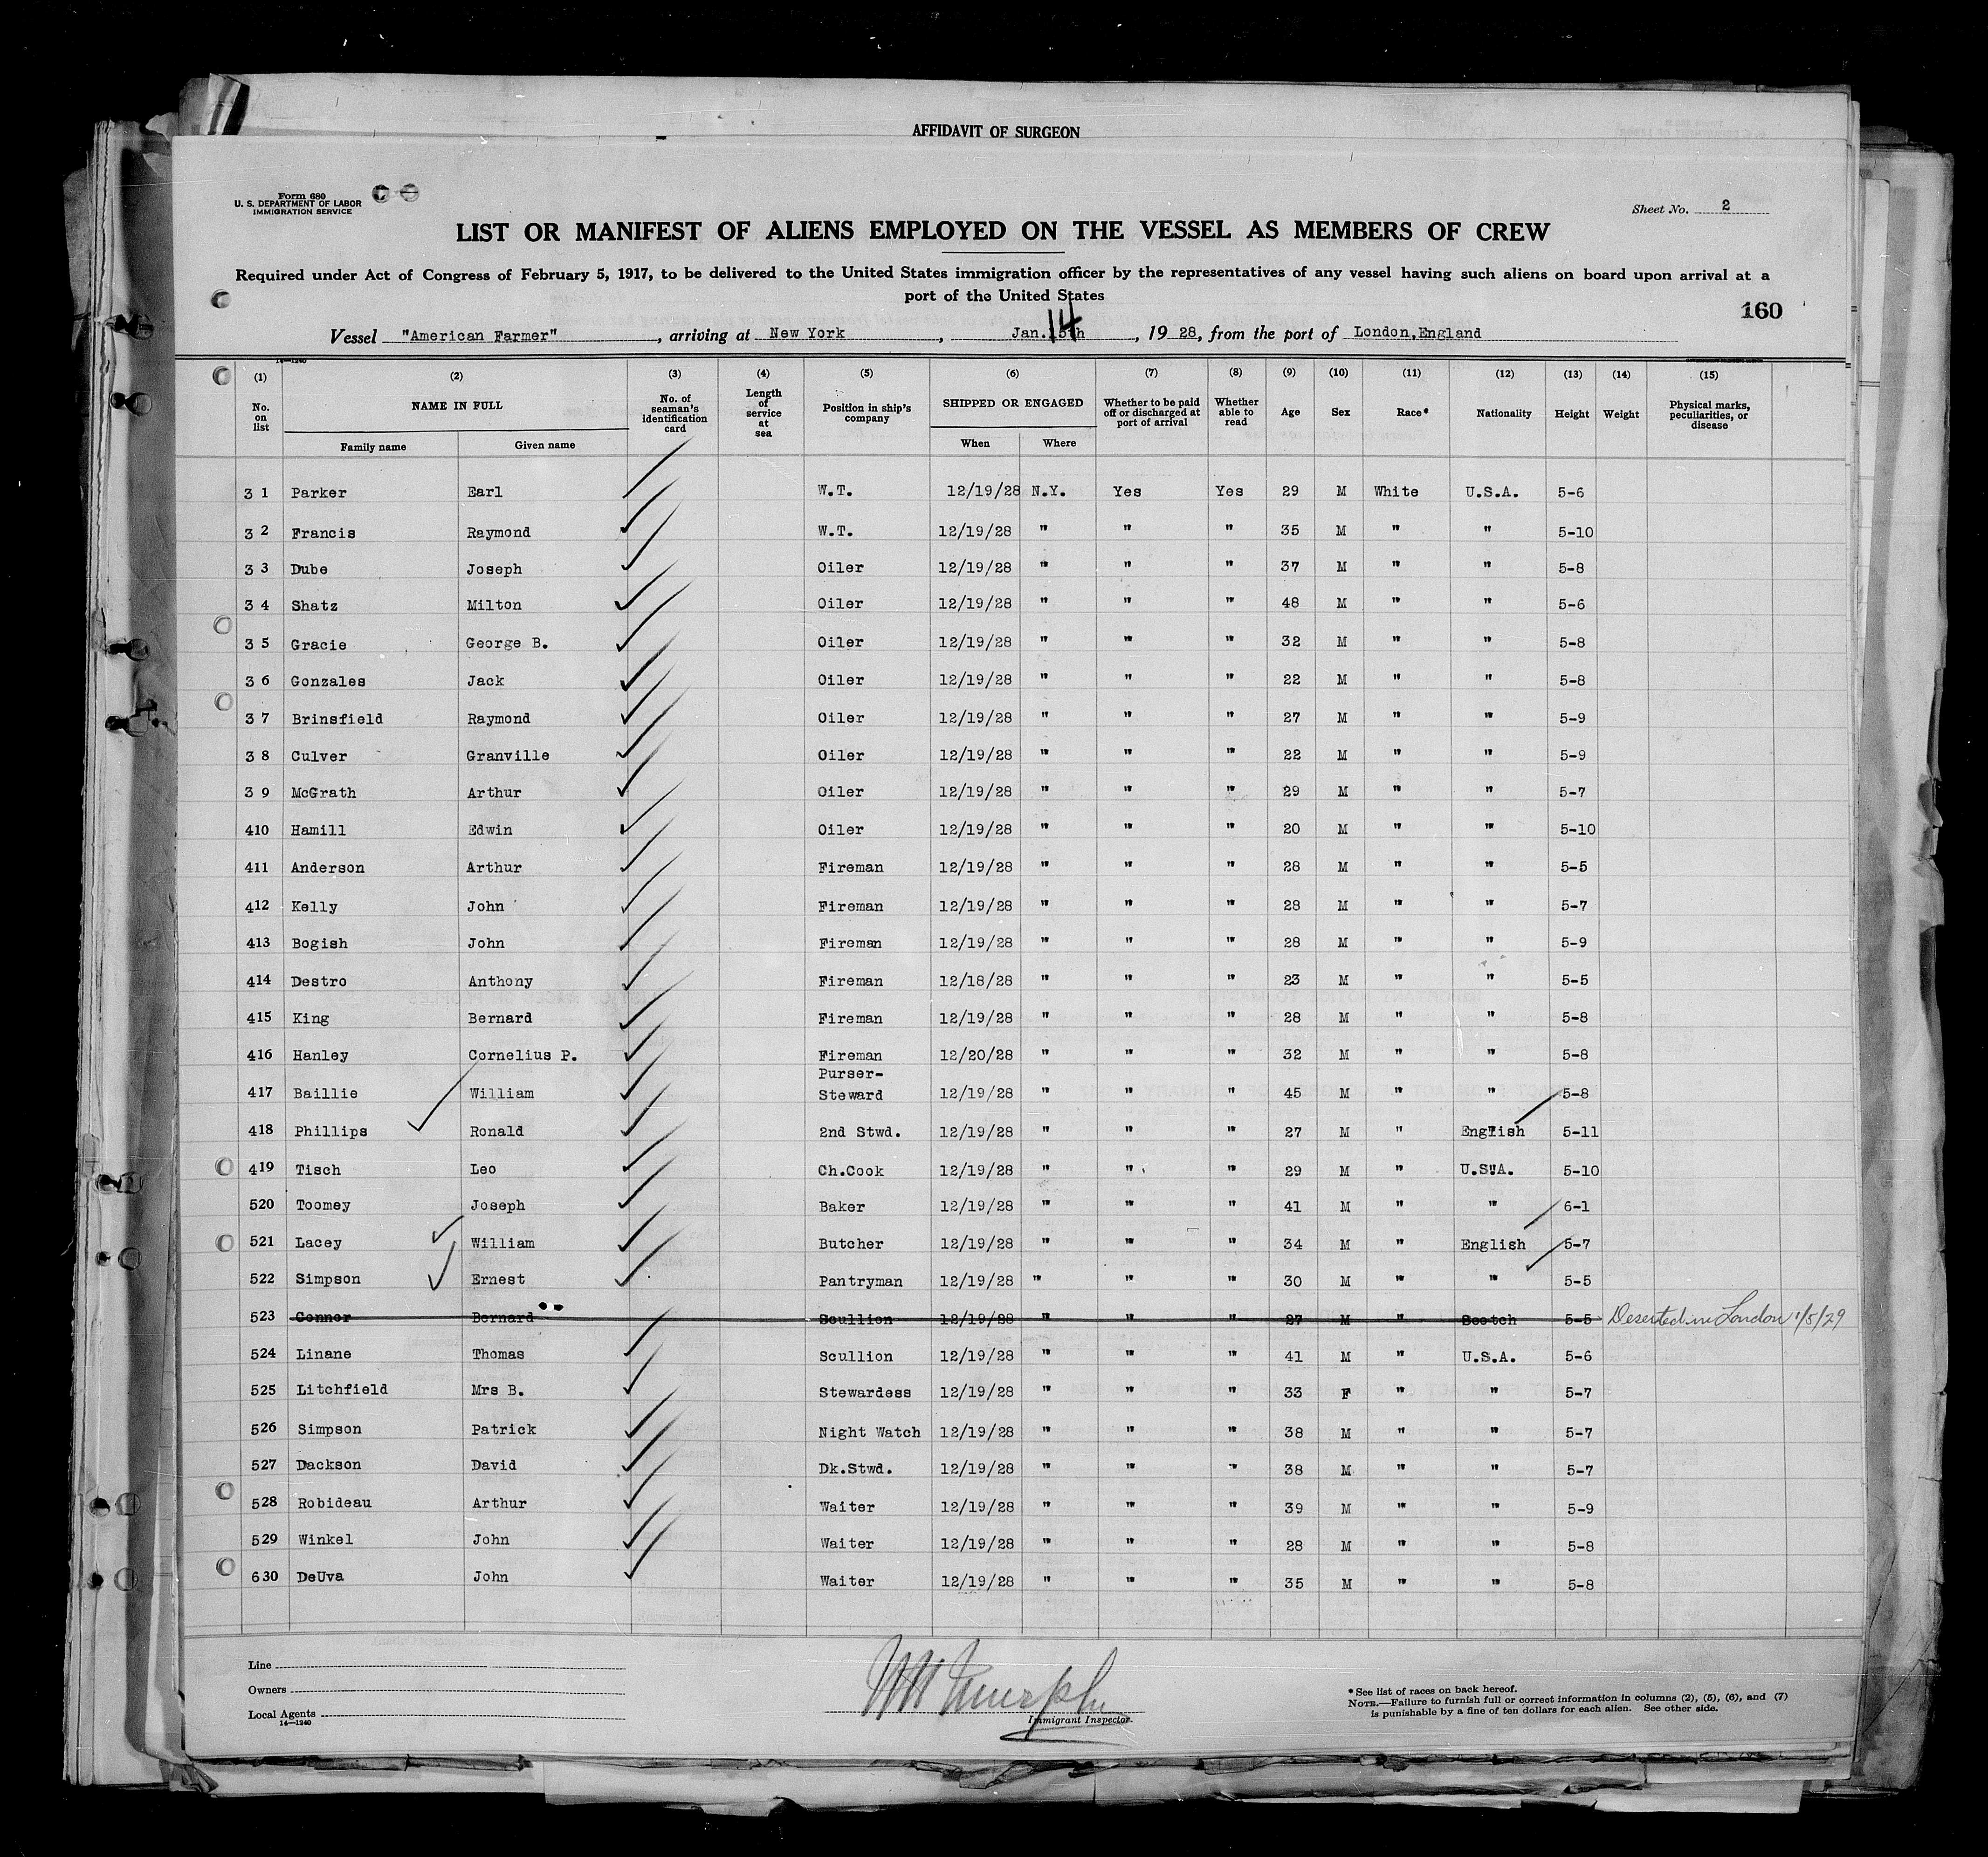 AFFIDAVIT OF SURGEON
Form 680
U. S. DEPARTMENT OF LABOR
IMMIGRATION SERVICE
Sheet No. 2
LIST OR MANIFEST OF ALIENS EMPLOYED ON THE VESSEL AS MEMBERS OF CREW
Required under Act of Congress of February 5, 1917, to be delivered to the United States immigration officer by the representatives of any vessel having such aliens on board upon arrival at a
port of the United States
160
Vessel "American Farmer", arriving at New York, Jan. 14th, 1928, from the port of London,England
14—1240
(1) (2) (3) (4) (5) (6) (7) (8) (9) (10) (11) (12) (13) (14) (15)
No. on list NAME IN FULL Family name Given name No. of seaman's identification card Length of service at sea Position in ship's company SHIPPED OR ENGAGED When Where Whether to be paid off or discharged at port of arrival Whether able to read Age Sex Race* Nationality Height Weight Physical marks, peculiarities, or disease
3 1 Parker Earl W.T. 12/19/28 N.Y. Yes Yes 29 M White U.S.A. 5-6
3 2 Francis Raymond W.T. 12/19/28 " " " 35 M " " 5-10
3 3 Dube Joseph Oiler 12/19/28 " " " 37 M " " 5-8
3 4 Shatz Milton Oiler 12/19/28 " " " 48 M " " 5-6
3 5 Gracie George B. Oiler 12/19/28 " " " 32 M " " 5-8
3 6 Gonzales Jack Oiler 12/19/28 " " " 22 M " " 5-8
3 7 Brinsfield Raymond Oiler 12/19/28 " " " 27 M " " 5-9
3 8 Culver Granville Oiler 12/19/28 " " " 22 M " " 5-9
3 9 McGrath Arthur Oiler 12/19/28 " " " 29 M " " 5-7
410 Hamill Edwin Oiler 12/19/28 " " " 20 M " " 5-10
411 Anderson Arthur Fireman 12/19/28 " " " 28 M " " 5-5
412 Kelly John Fireman 12/19/28 " " " 28 M " " 5-7
413 Bogish John Fireman 12/19/28 " " " 28 M " " 5-9
414 Destro Anthony Fireman 12/18/28 " " " 23 M " " 5-5
415 King Bernard Fireman 12/19/28 " " " 28 M " " 5-8
416 Hanley Cornelius P. Fireman 12/20/28 " " " 32 M " " 5-8
417 Baillie William Purser-Steward 12/19/28 " " " 45 M " " 5-8
418 Phillips Ronald 2nd Stwd. 12/19/28 " " " 27 M " English 5-11
419 Tisch Leo Ch.Cook 12/19/28 " " " 29 M " U.S.A. 5-10
520 Toomey Joseph Baker 12/19/28 " " " 41 M " " 6-1
521 Lacey William Butcher 12/19/28 " " " 34 M " English 5-7
522 Simpson Ernest Pantryman 12/19/28 " " " 30 M " " 5-5
523 Connor Bernard Scullion 12/19/28 " " " 27 M " Scotch 5-5 Deserted in London 1/5/29
524 Linane Thomas Scullion 12/19/28 " " " 41 M " U.S.A. 5-6
525 Litchfield Mrs B. Stewardess 12/19/28 " " " 33 F " " 5-7
526 Simpson Patrick Night Watch 12/19/28 " " " 38 M " " 5-7
527 Dackson David Dk.Stwd. 12/19/28 " " " 38 M " " 5-7
528 Robideau Arthur Waiter 12/19/28 " " " 39 M " " 5-9
529 Winkel John Waiter 12/19/28 " " " 28 M " " 5-8
630 DeUva John Waiter 12/19/28 " " " 35 M " " 5-8
Line
Owners
Local Agents
14—1240
Murphy
Immigrant Inspector.
*See list of races on back hereof.
NOTE.—Failure to furnish full or correct information in columns (2), (5), (6), and (7)
is punishable by a fine of ten dollars for each alien. See other side.